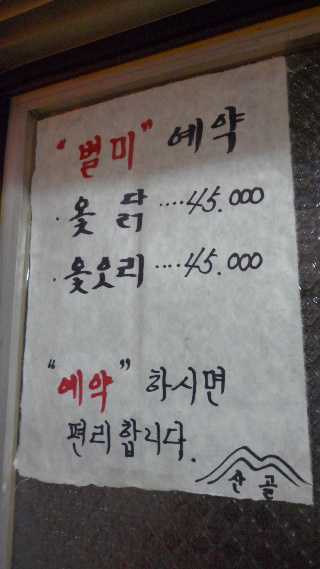 "별미" 예약
· 옻 닭 ····45.000
· 옻오리 ····45.000
"예약" 하시면
편리합니다.
산골